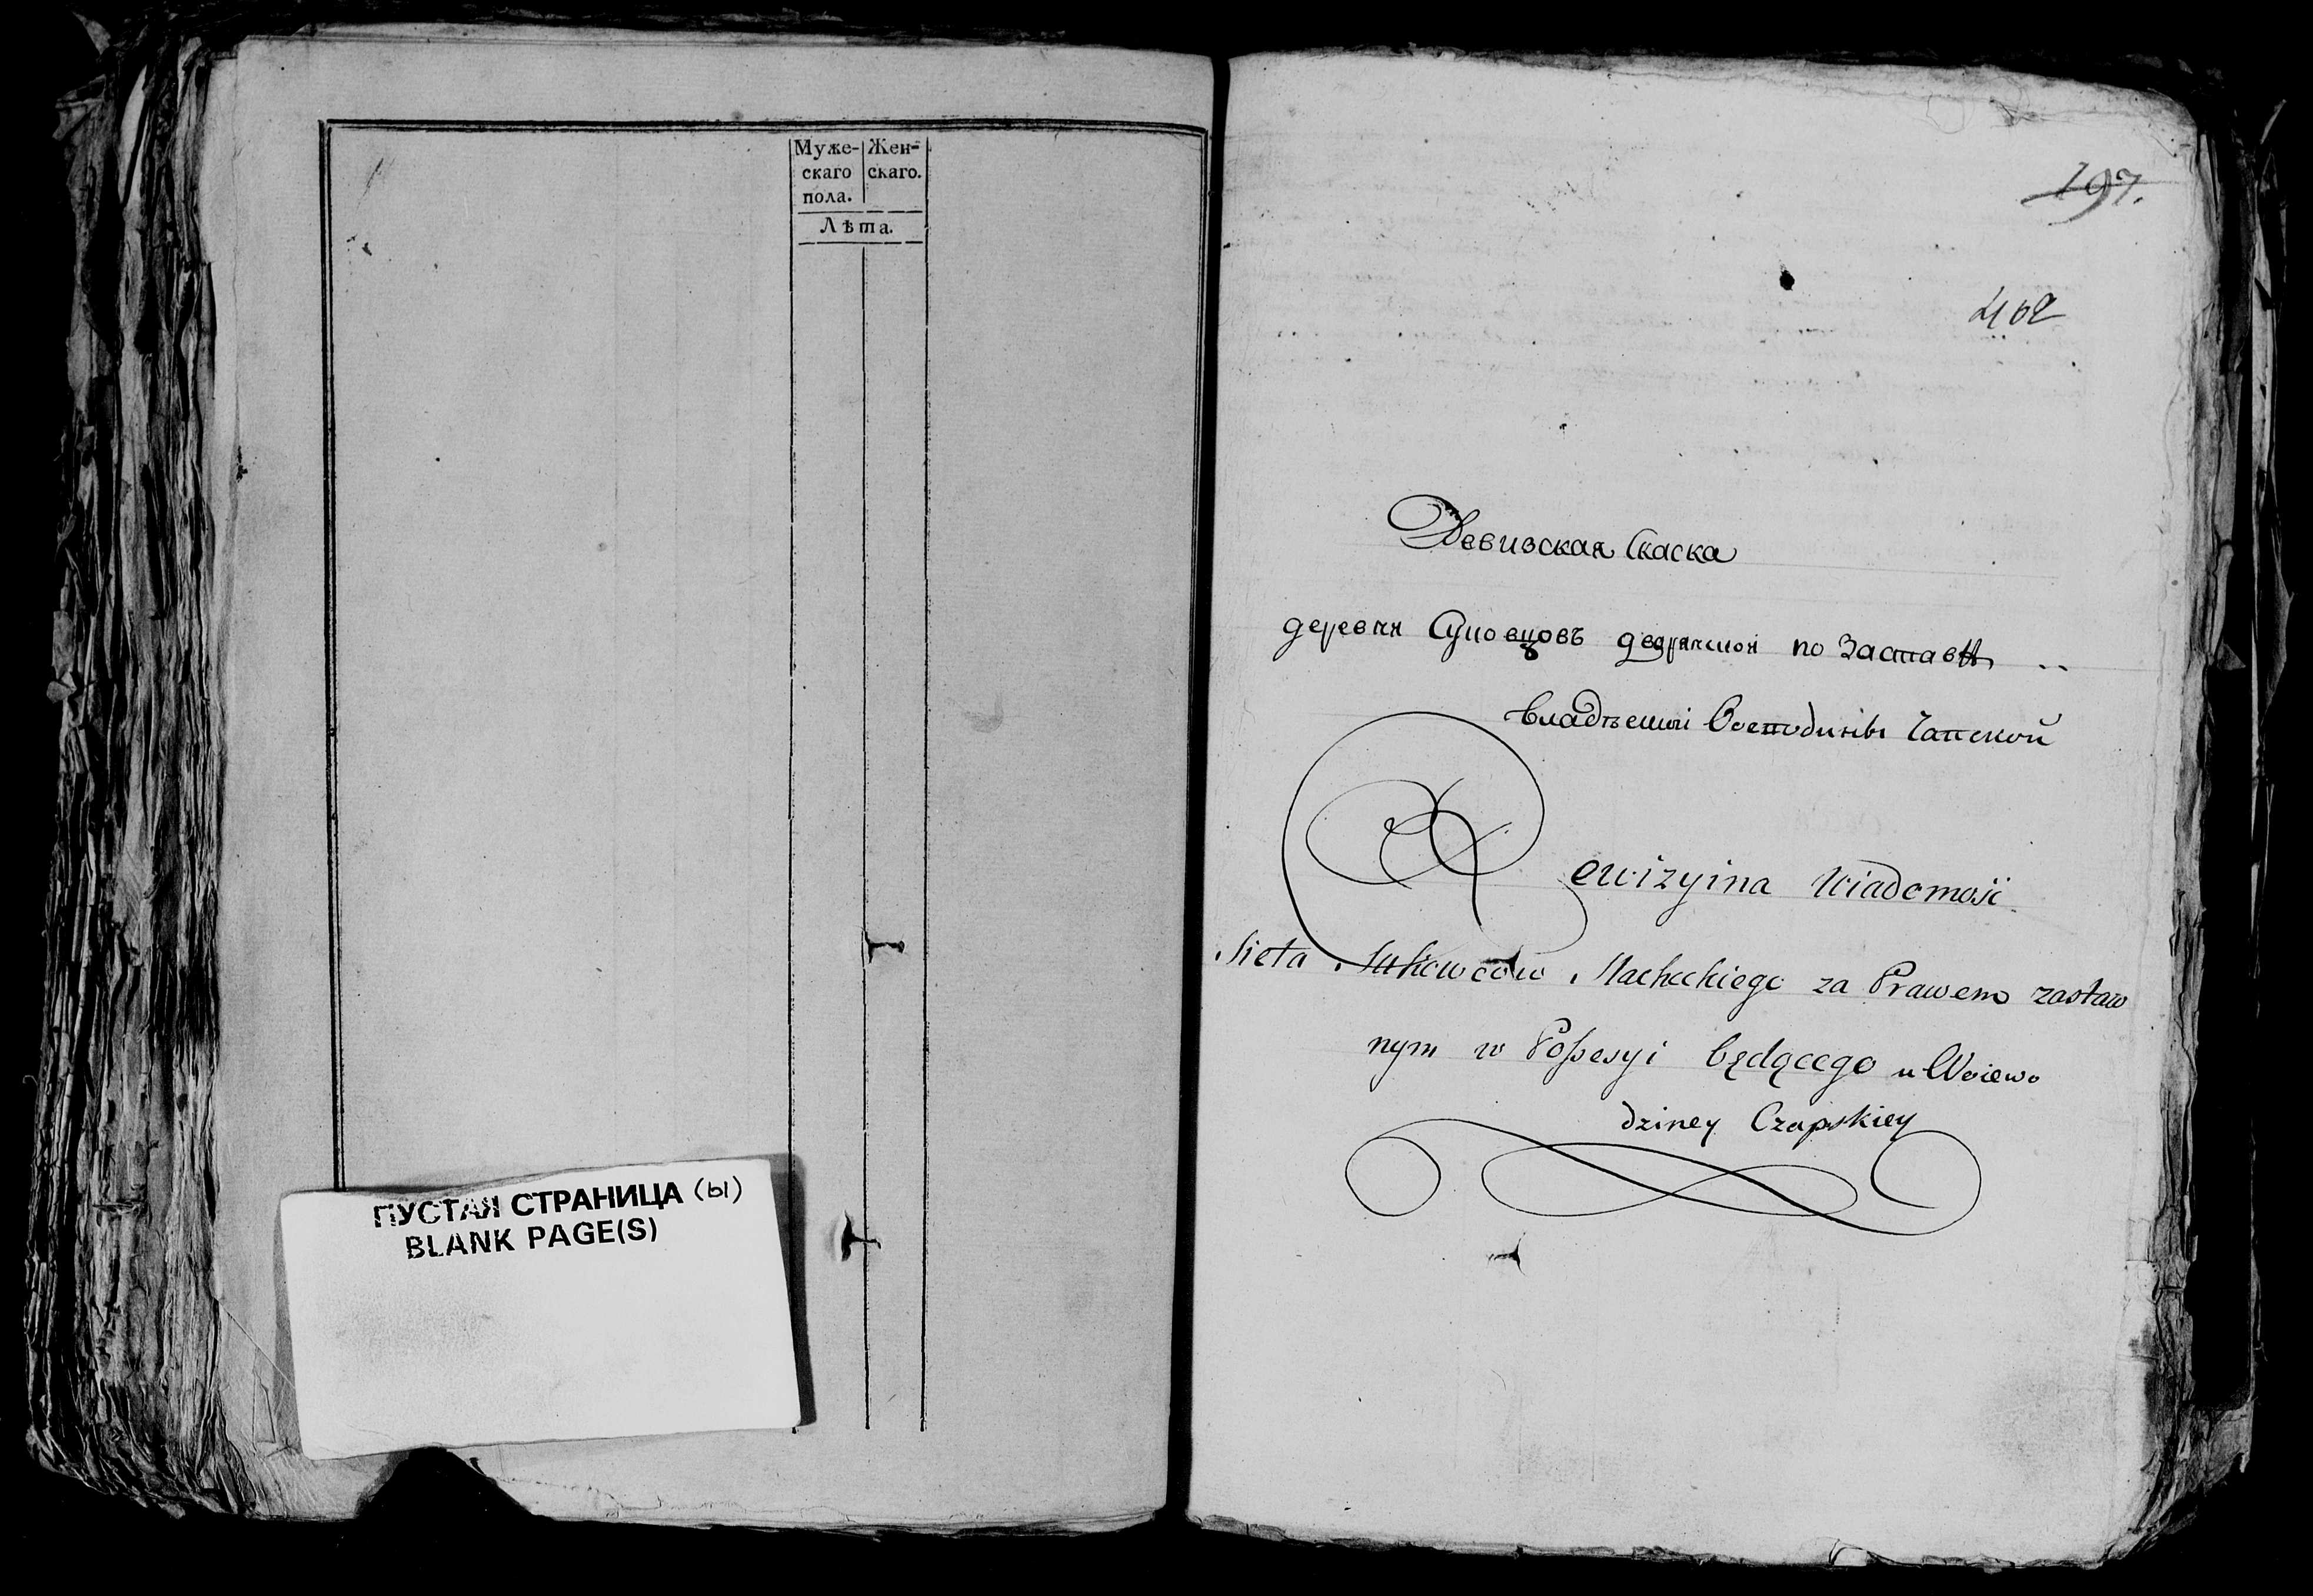 Муже-
скаго
пола.
Жен-
скаго.
Лѣта.
ПУСТАЯ СТРАНИЦА (ы)
BLANK PAGE(S)
197.
402
Ревизская Скаска
деревни дворянской по Заставѣ
владѣемой Госпожи Чапской
Rewizyina Wiadomość
Sieła Sukowców Szlacheckiego za Prawem zastaw
nym w Possesyi będącego u Woiewo
dziney Czapskiey